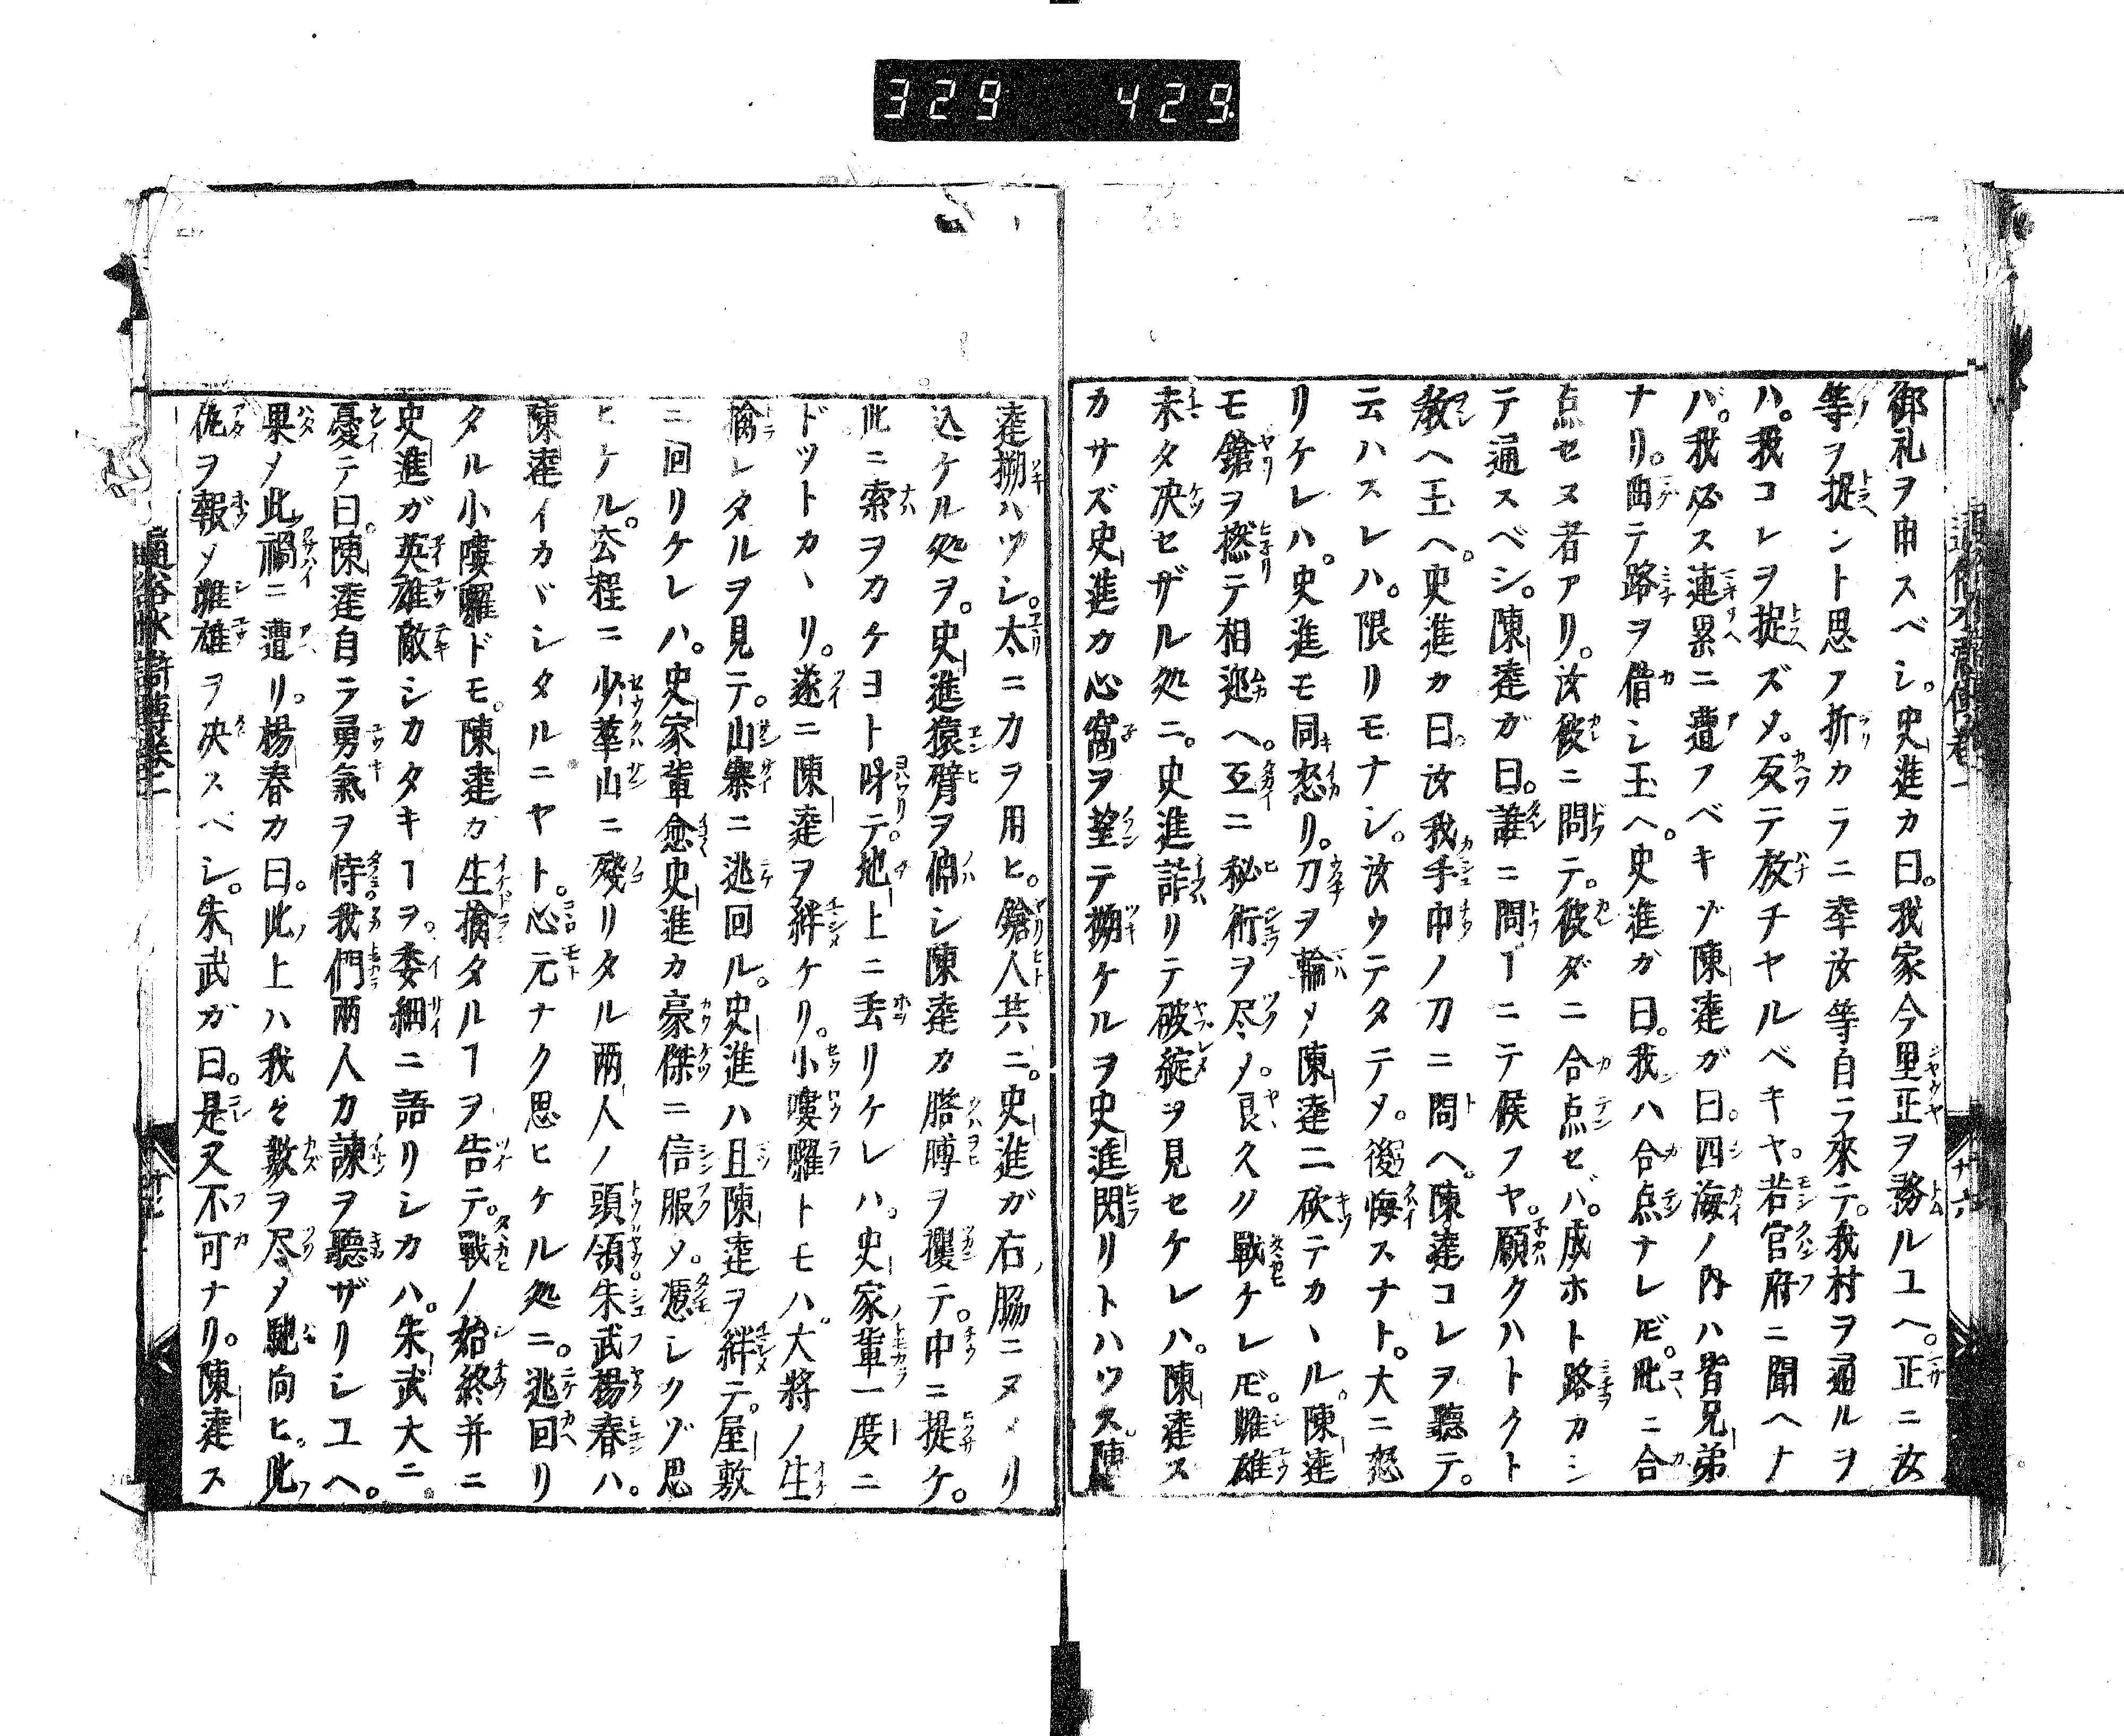 329 429
御礼ヲ申スベシ。史進カ曰。我家今里正ヲ務ルユヘ。正ニ汝
等ヲ捉ント思ア折カラニ幸汝等自ラ來テ。我村ヲ通ルヲ
ハ。我コレヲ捉ズメ。反テ放チヤルベキヤ。若官府ニ聞ヘナ
バ。我必ス連累ニ遭フベキゾ陳達ガ曰。四海ノ内ハ皆兄弟
ナリ。テ路ヲ借シ玉ヘ。史進ガ曰。我ハ合点ナレ𪜈。此ニ合
点セヌ者アリ。汝彼ニ問テ。彼ダニ合点セバ。成ホト路カシ
テ通スベシ。陳達ガ曰。誰ニ問ヿニテ候フヤ。願クハトクト
教ヘ玉ヘ。史進カ曰。汝我手中ノ刀ニ問ヘ。陳達コレヲ聽テ。
云ハスレハ。限リモナシ。汝ウテタテメ。後悔スナト。大ニ怒
リケレハ。史進モ同怒リ。刀ヲ輪メ陳達ニ砍テカヽル。陳達
モ鎗ヲ撚テ相迎ヘ。互ニ秘術ヲ尽メ。良久ク戰ケレ𪜈。雌雄
未タ决セザル処ニ。史進詐リテ破綻ヲ見セケレハ。陳達ス
カサズ史進カ心窩ヲ望テ搠ケルヲ史進閃リトハヅス。陳
達搠ハヅシ。太ニカヲ用ヒ。鎗人共ニ。史進ガ右脇ニヌメリ
込ケル処ヲ。史進猿臂ヲ伸シ陳達カ胳膊ヲ攫テ。中ニ提ケ。
此ニ索ヲカケヨト呼テ。地上ニ丢リケレハ。史家輩一度ニ
ドツトカヽリ。遂ニ陳達ヲ絆ケリ。小嘍囉トモハ。大將ノ生
擒レタルヲ見テ。山寨ニ逃回ル。史進ハ且陳達ヲ絆テ。屋敷
ニ回リケレハ。史家輩愈史進カ豪傑ニ信服メ。憑シクゾ思
ヒケル。𫝶程ニ少華山ニ殘リタル兩人ノ頭領朱武楊春ハ。
陳達イカヾシタルニヤト。心元ナク思ヒケル処ニ。逃回リ
タル小嘍囉ドモ。陳達カ生擒タルヿヲ告テ。戰ノ始終并ニ
史進ガ英雄敵シカタキヿヲ。委細ニ語リシカハ。朱武大ニ
憂テ曰。陳達自ラ勇氣ヲ恃我們兩人カ諫ヲ聽ザリシユヘ。
果メ此禍ニ遭リ。楊春カ曰。此上ハ我々數ヲ尽メ馳向ヒ。此
仇ヲ報メ雌雄ヲ决スベシ。朱武ガ曰。是又不可ナリ。陳達ス
通俗水滸傳卷二